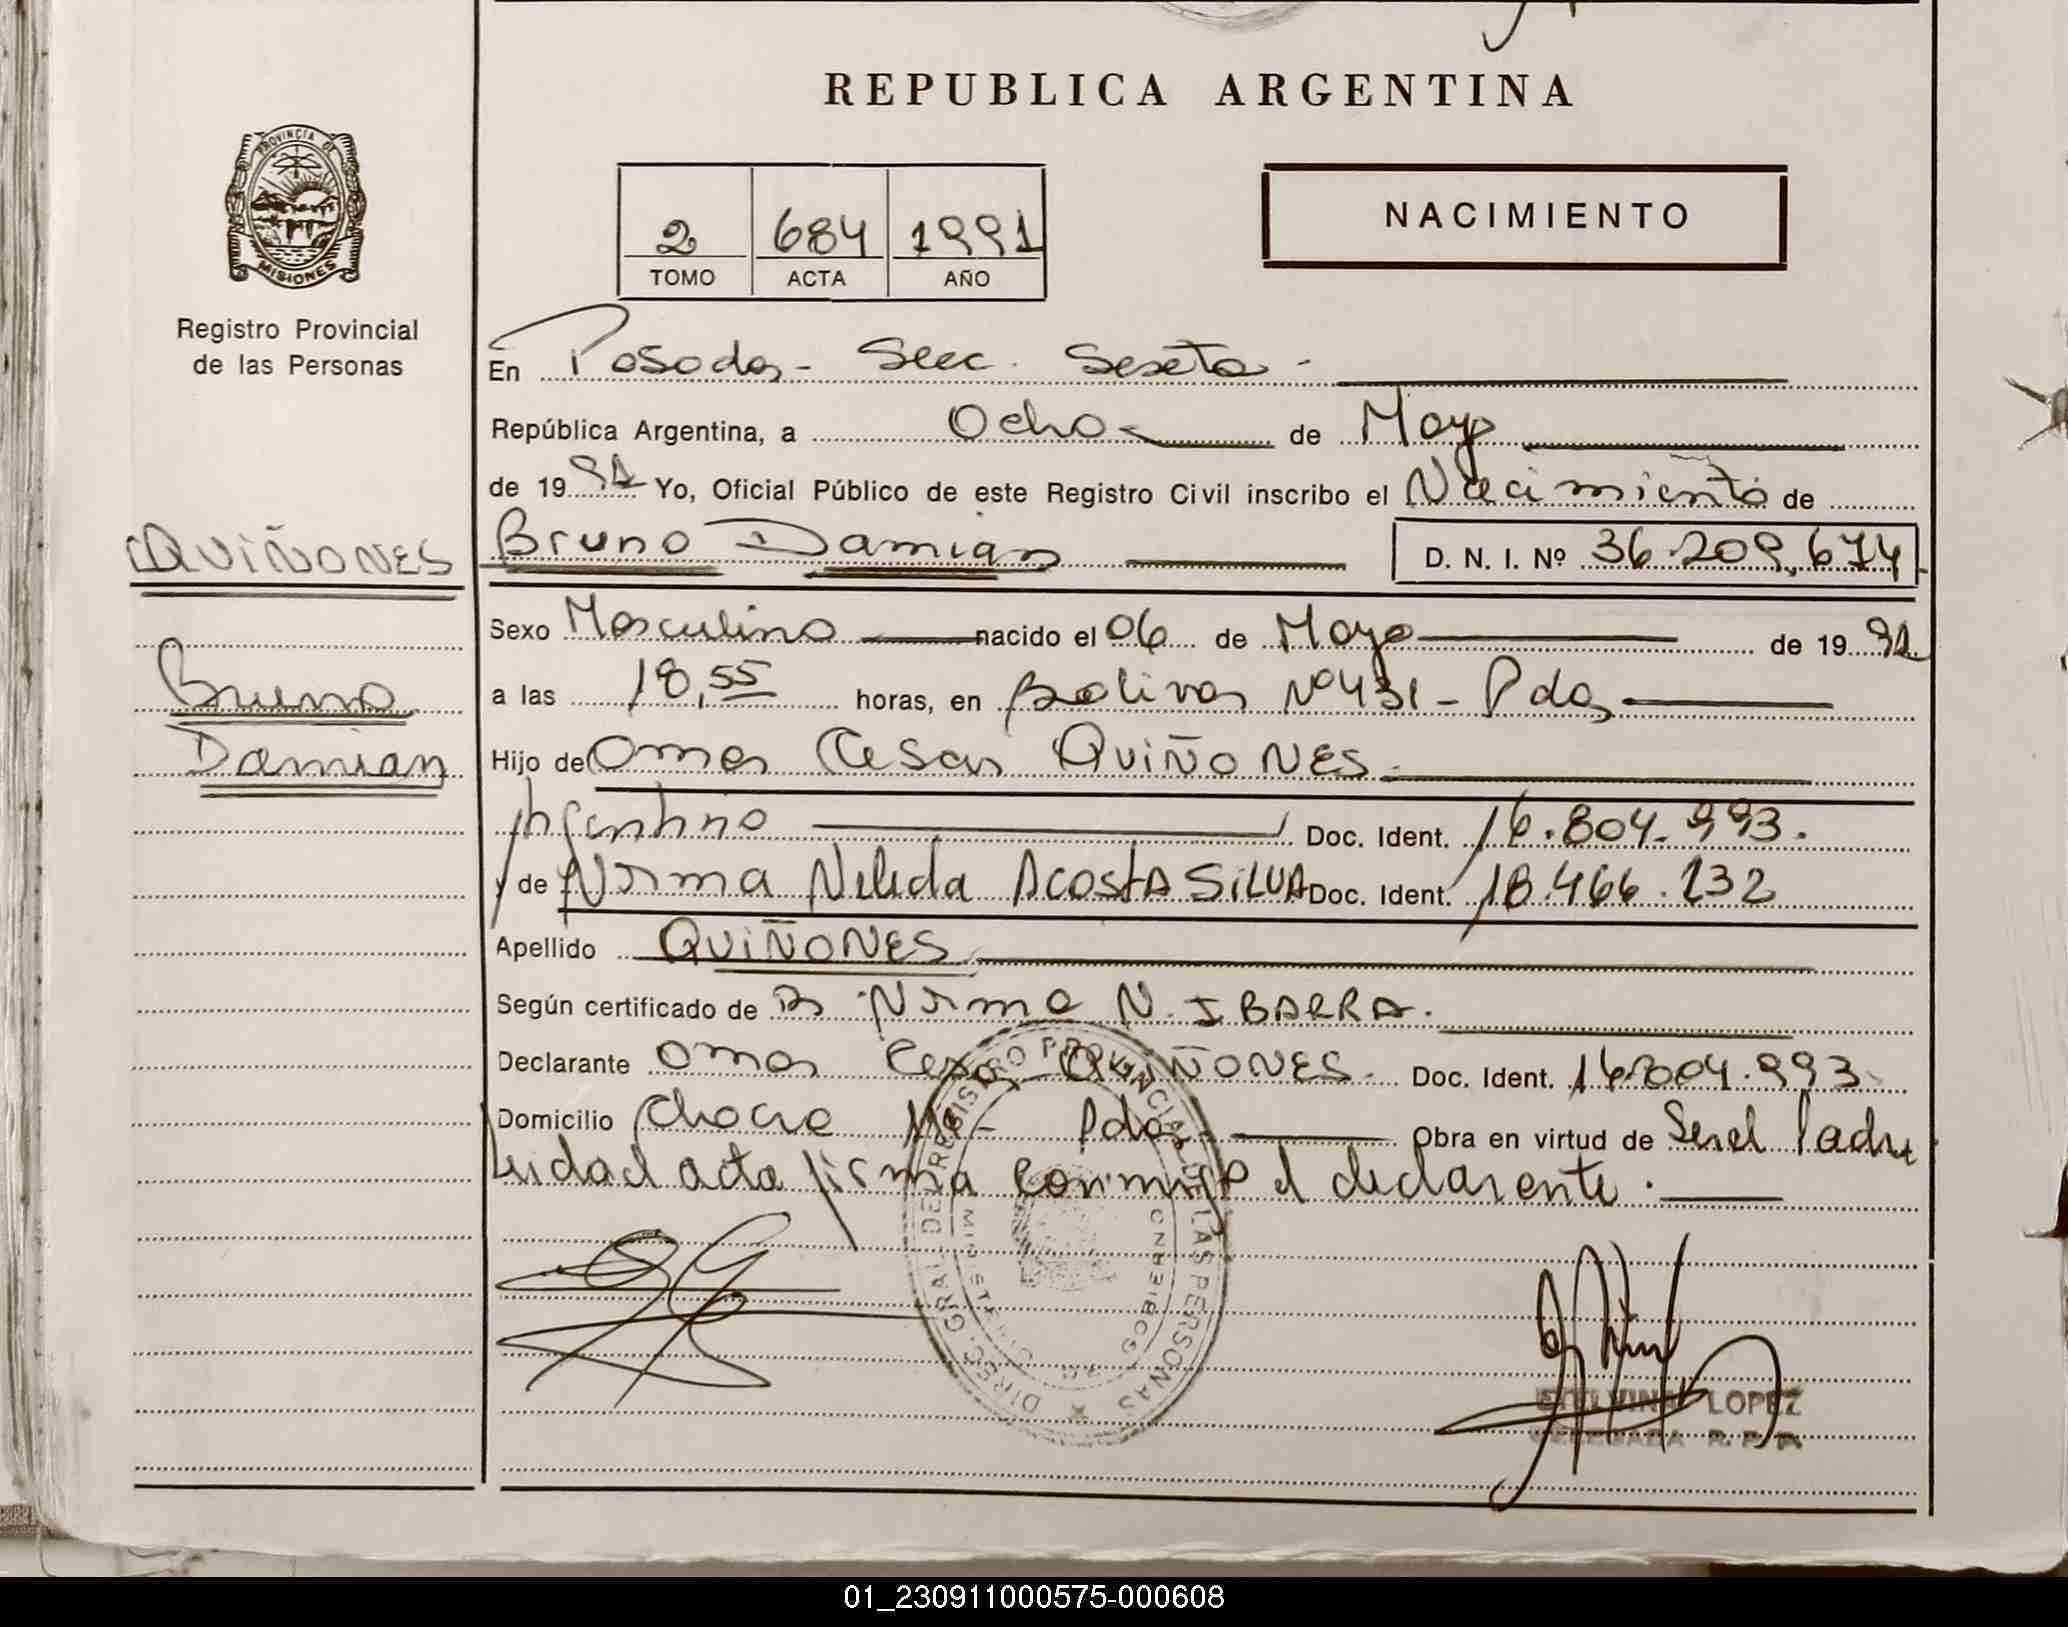 REPUBLICA ARGENTINA
PROVINCIA DE
MISIONES
Registro Provincial
de las Personas
2 684 1991
TOMO ACTA AÑO
NACIMIENTO
En Posadas - Secc. Sexta -
República Argentina, a Ocho de Mayo
de 1991 Yo, Oficial Público de este Registro Civil inscribo el Nacimiento de
QUIÑONES
Bruno
Damian
Bruno Damian D. N. I. Nº 36.209.674
Sexo Masculino nacido el 06 de Mayo de 1991
a las 18,55 horas, en Bolivar Nº 431 - Pdas
Hijo de Omar Cesar QUIÑONES
Argentino Doc. Ident. 16.804.993.
y de Norma Nelida ACOSTA SILVA Doc. Ident. 18.466.132
Apellido QUIÑONES
Según certificado de Dr Norma N. IBARRA.
Declarante Omar Cesar QUIÑONES. Doc. Ident. 16.804.993
Domicilio Chacra - Pdas Obra en virtud de Ser el Padre
Leida el acta firma conmigo el declarante.
DIREC. GRAL. DEL REGISTRO PROVINCIAL DE LAS PERSONAS
MINISTERIO GOBIERNO
LOPEZ
DELEGADA R. P. P.
01_230911000575-000608